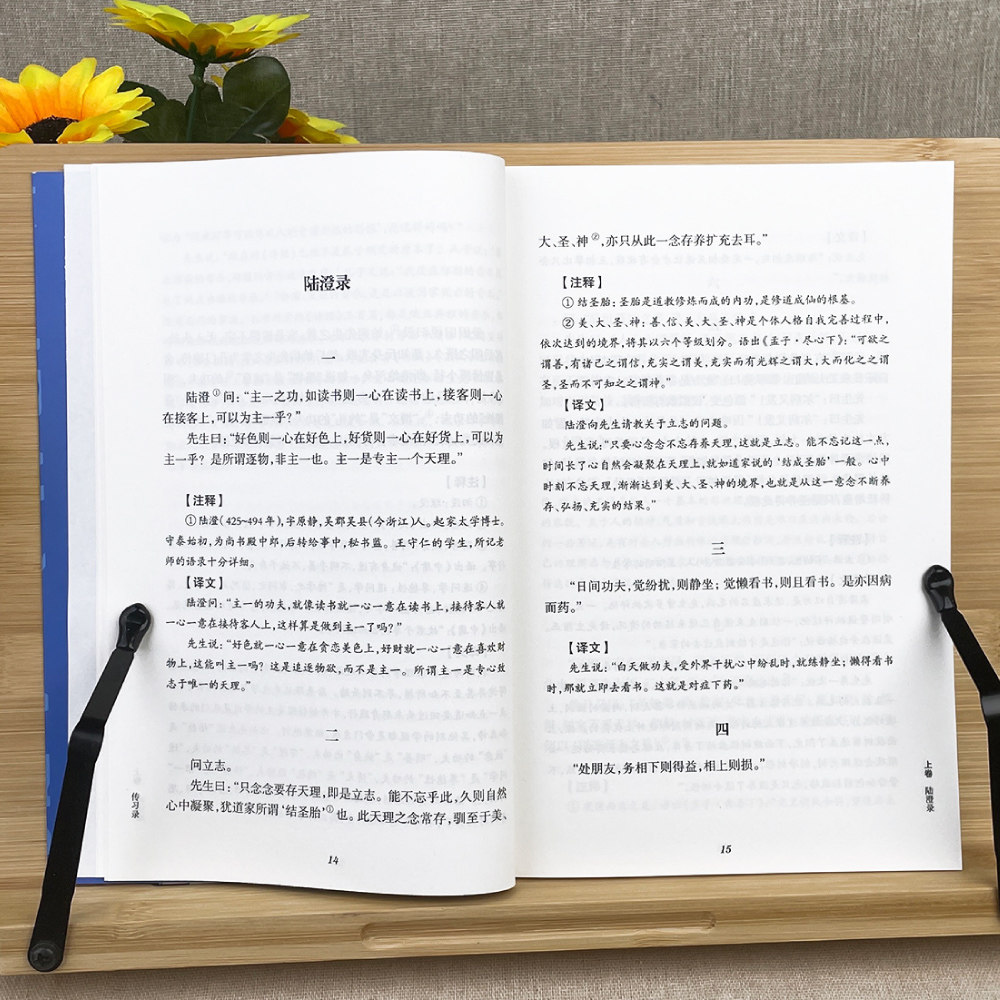 陆澄录
一
陆澄①问：“主一之功，如读书则一心在读书上，接客则一心
在接客上，可以为主一乎？”
先生曰：“好色则一心在好色上，好货则一心在好货上，可以为
主一乎？是所谓逐物，非主一也。主一是专主一个天理。”
【注释】
①陆澄（425~494年），字原静，吴郡吴县（今浙江）人。起家太学博士。
宋泰始初，为尚书殿中郎，后转给事中，秘书监。王守仁的学生，所记老
师的语录十分详细。
【译文】
陆澄问：“主一的功夫，就像读书就一心一意在读书上，接待客人就
一心一意在接待客人上，这样算是做到主一了吗？”
先生说：“好色就一心一意在贪恋美色上，好财就一心一意在喜欢财
物上，这能叫主一吗？这是追逐物欲，而不是主一。所谓主一是专心致
志于唯一的天理。”
二
问立志。
先生曰：“只念念要存天理，即是立志。能不忘乎此，久则自然
心中凝聚，犹道家所谓‘结圣胎’①也。此天理之念常存，驯至于美、
上卷
传习录
14
大、圣、神②，亦只从此一念存养扩充去耳。”
【注释】
①结圣胎：圣胎是道教修炼而成的内功，是修道成仙的根基。
②美、大、圣、神：善、信、美、大、圣、神是个体人格自我完善过程中，
依次达到的境界，将其以六个等级划分。语出《孟子·尽心下》：“可欲之
谓善，有诸己之谓信，充实之谓美，充实而有光辉之谓大，大而化之之谓
圣，圣而不可知之之谓神。”
【译文】
陆澄向先生请教关于立志的问题。
先生说：“只要心念念不忘存养天理，这就是立志。能不忘记这一点，
时间长了心自然会凝聚在天理上，就如道家说的‘结成圣胎’一般。心中
时刻不忘天理，渐渐达到美、大、圣、神的境界，也就是从这一意念不断养
存、弘扬、充实的结果。”
三
“日间功夫，觉纷扰，则静坐；觉懒看书，则且看书。是亦因病
而药。”
【译文】
先生说：“白天做功夫，受外界干扰心中纷乱时，就练静坐；懒得看书
时，那就立即去看书。这就是对症下药。”
四
“处朋友，务相下则得益，相上则损。”
上卷 陆澄录
15